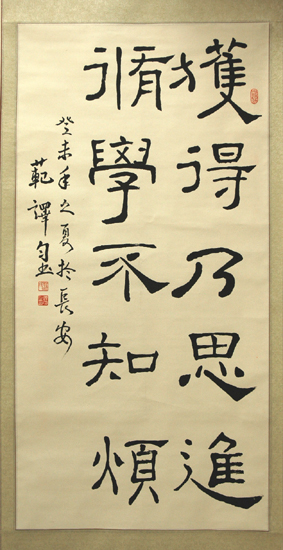 獲得乃思進
脩學不知煩
癸未年之夏於長安
範譯勻书